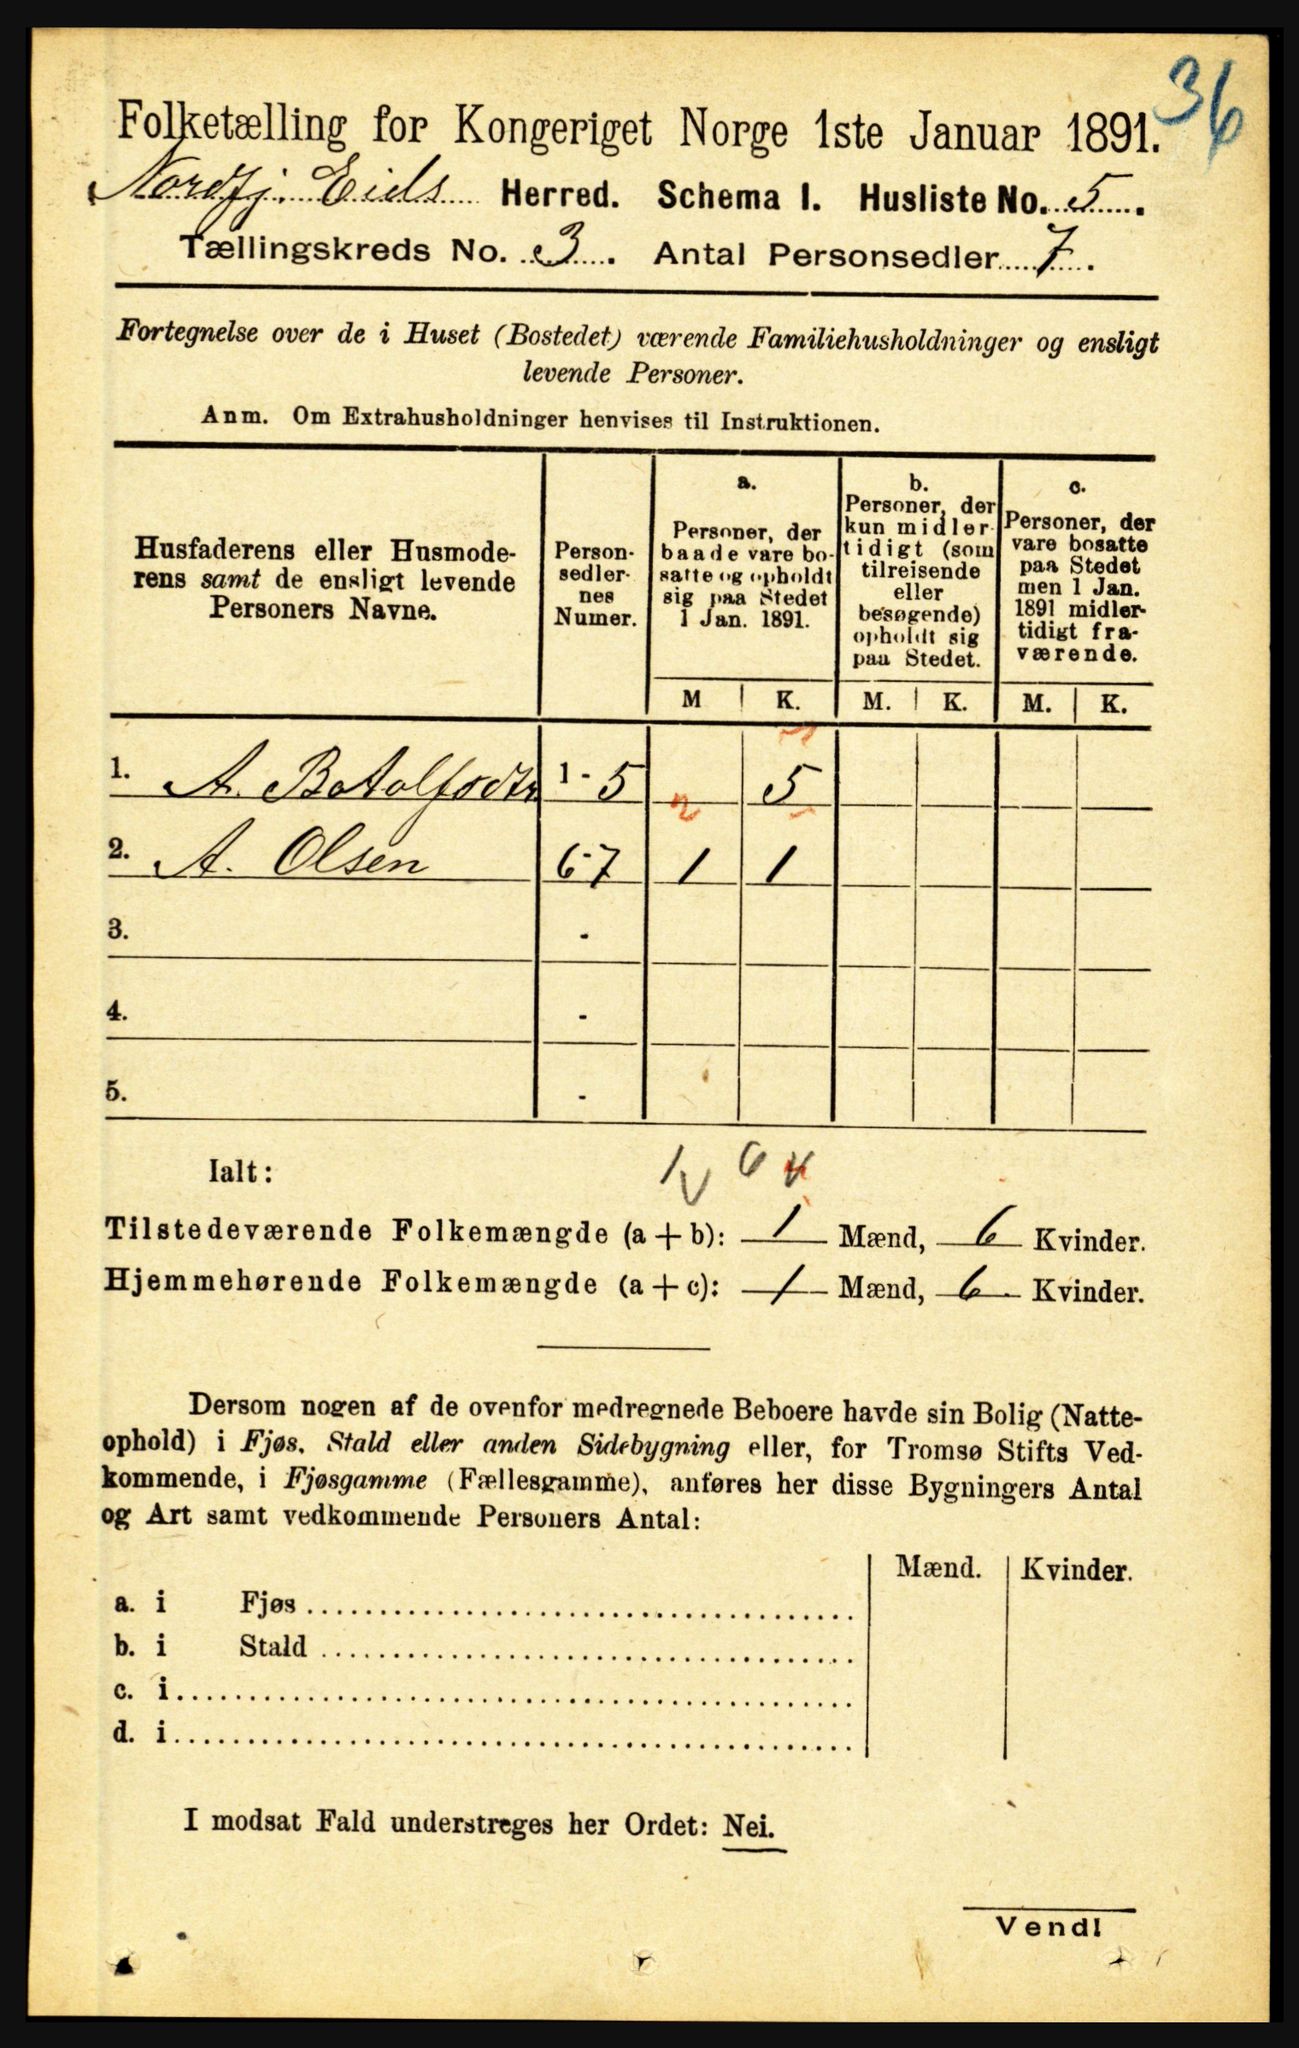 36
Folketælling for Kongeriget Norge 1ste Januar 1891.
Nordfj. Eids Herred. Schema I. Husliste No. 5.
Tællingskreds No. 3. Antal Personsedler 7.
Fortegnelse over de i Huset (Bostedet) værende Familiehusholdninger og ensligt
levende Personer.
Anm. Om Extrahusholdninger henvises til Instruktionen.
Husfaderens eller Husmode-
rens samt de ensligt levende
Personers Navne.
Person-
sedler-
nes
Numer.
a.
Personer, der
baade vare bo-
satte og opholdt
sig paa Stedet
1 Jan. 1891.
b.
Personer, der
kun midler-
tidigt (som
tilreisende
eller
besøgende)
opholdt sig
paa Stedet.
c.
Personer, der
vare bosatte
paa Stedet
men 1 Jan.
1891 midler-
tidigt fra-
værende.
M K. M. K. M. K.
1. A. Botolfsdtr 1-5 5
2. A. Olsen 6-7 1 1
3. -
4. -
5. -
Ialt: 1 6
Tilstedeværende Folkemængde (a + b): 1 Mænd, 6 Kvinder.
Hjemmehørende Folkemængde (a + c): 1 Mænd, 6 Kvinder.
Dersom nogen af de ovenfor medregnede Beboere havde sin Bolig (Natte-
ophold) i Fjøs, Stald eller anden Sidebygning eller, for Tromsø Stifts Ved-
kommende, i Fjøsgamme (Fællesgamme), anføres her disse Bygningers Antal
og Art samt vedkommende Personers Antal:
Mænd. Kvinder.
a. i Fjøs
b. i Stald
c. i
d. i
I modsat Fald understreges her Ordet: Nei.
Vend!